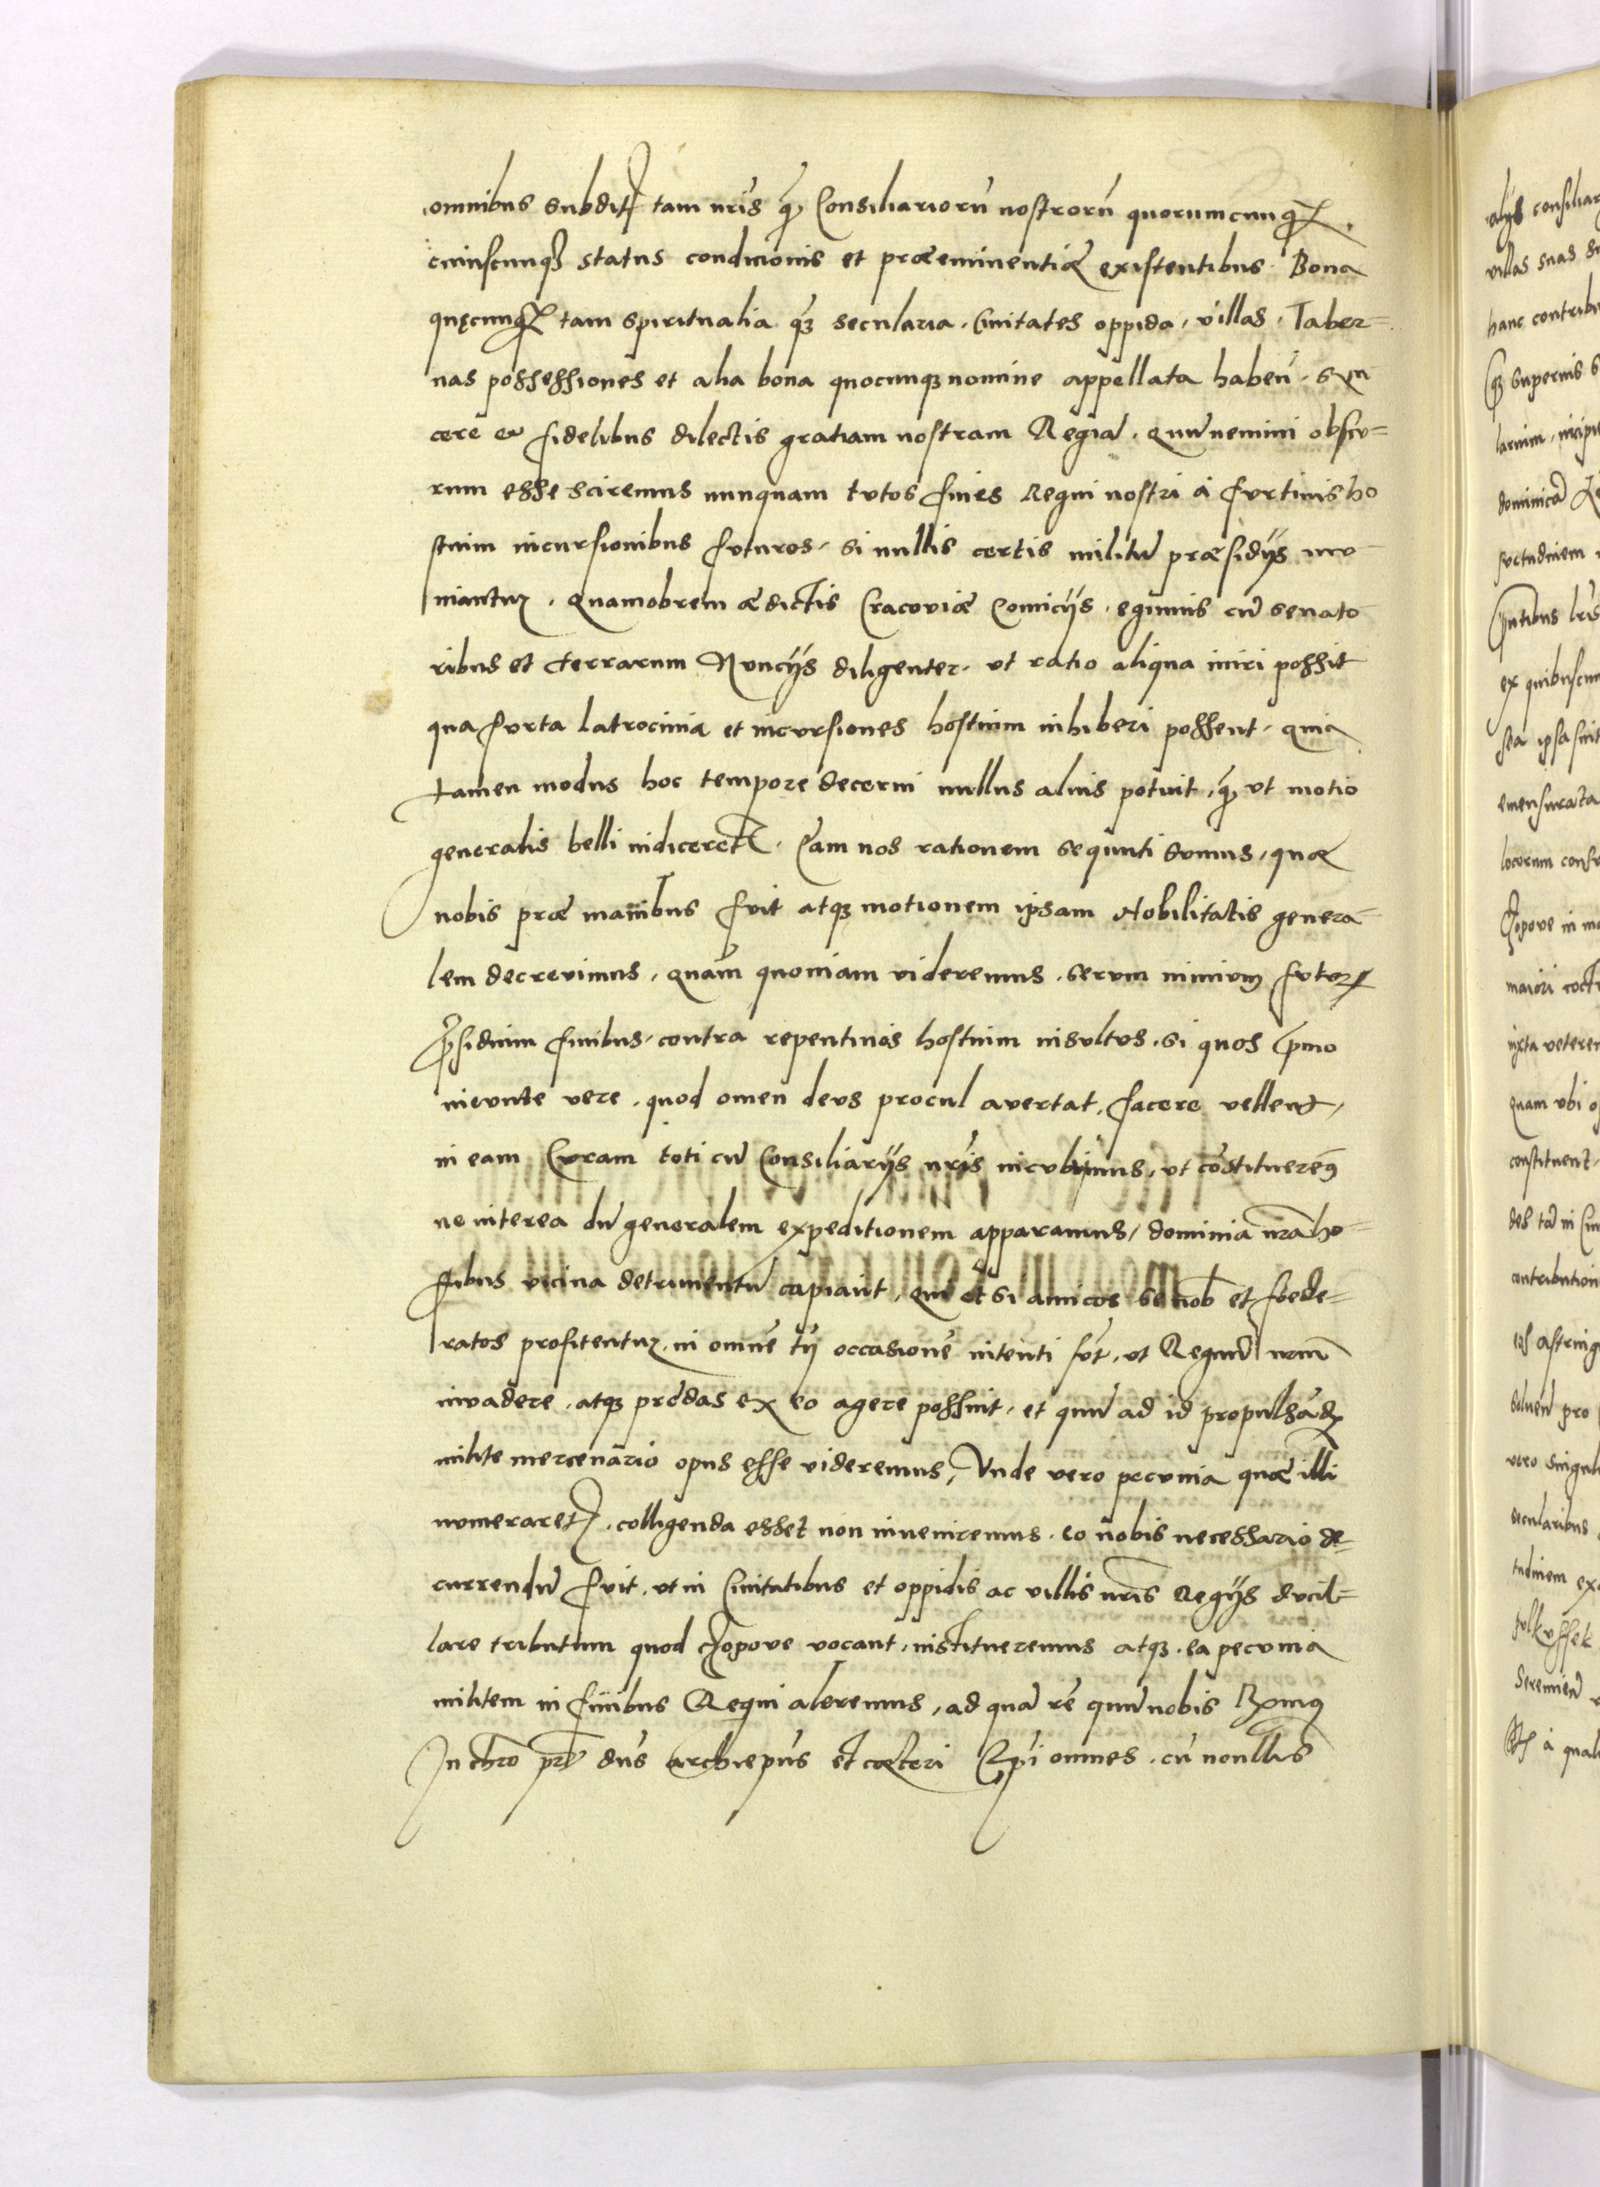 omnibus subdit tam nris q Consiliarioru nostroru quorumcunq
cuiuscunq status condicionis et præeminentiæ existentibus. Bona
quęcunq tam spiritualia q secularia. Civitates oppida, villas, Taber=
nas possessiones et alia bona quocunq nomine appellata haben. Syn
cere et fidelibus dilectis gratiam nostram Regia. Quu nemini obscu=
rum esse sciremus nunquam tutos fines Regni nostri à furtivis ho
stium incursionibus futuros, si nullis certis militu præsidijs mu
niantur. Quamobrem ædictis Cracoviæ Comicijs, egimus cu senato
ribus et terrarum Nuncijs diligenter, ut ratio aliqua iniri possit
qua furta latrocinia et incursiones hostium inhiberi possent, quia
tamen modus hoc tempore decerni nullus alius potuit, q ut motio
generalis belli indiceret. Eam nos rationem sequuti sumus, quæ
nobis præ manibus fuit atq motionem ipsam Nobilitatis genera=
lem decrevimus, quam quoniam videremus, serum nimium futur
psidium finibus, contra repentinos hostium insultus, si quos pmo
ineunte vere, quod omen deus procul avertat, facere vellent,
in eam Curam toti cu Consiliarijs nris incubuimus, ut costituerem9
ne interea du generalem expeditionem apparamus, dominia nra ho=
stibus vicina detrimentu capiant, qui et si amicos se nob et foede=
ratos profitentur, in omne tn occasione intenti sut, ut Regnu nrm
invadere, atq prędas ex eo agere possint, et quu ad id propulsad
milite mercenario opus esse videremus, Unde vero pecunia quæ illi
numeraret, colligenda esset non inveniremus, eo nobis necessario de=
currendu fuit, ut in Civitatibus et oppidis ac villis nris Regijs ducil=
lare tributum quod czopove vocant, institueremus atq. ea pecunia
militem in finibus Regni aleremus, ad qua re quu nobis Rxmus
In chro pr dns archiepus et cæteri Epi omnes, cu nonllis